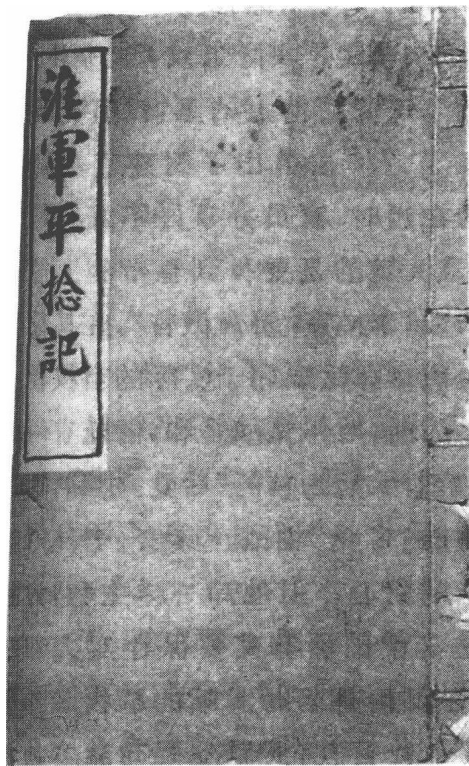 淮軍平捻記